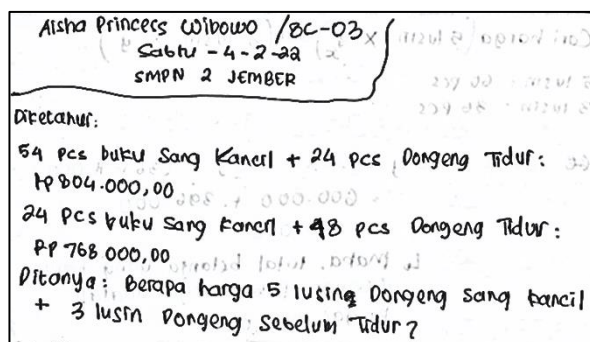 Aisha Princess Wibowo / 8C-03
Sabtu - 4-2-22
SMPN 2 JEMBER
Diketahui:
54 pcs buku Sang Kancil + 24 pcs Dongeng Tidur:
Rp 804.000,00
24 pcs buku Sang Kancil + 48 pcs Dongeng Tidur:
Rp 768 000,00
Ditanya: Berapa harga 5 lusing Dongeng Sang Kancil
+ 3 lusin Dongeng Sebelum Tidur?